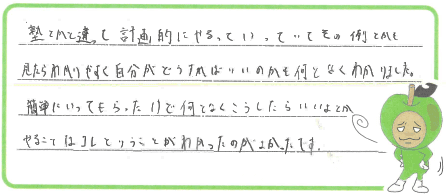 塾とかと違って計画的にやっていっていてその例とかも
見たらわかりやすく自分がどうすればいいのかも何となくわかりました。
簡単にいってもらっただけで何となくこうしたらいいよとか
やることはコレということがわかったのがよかったです。